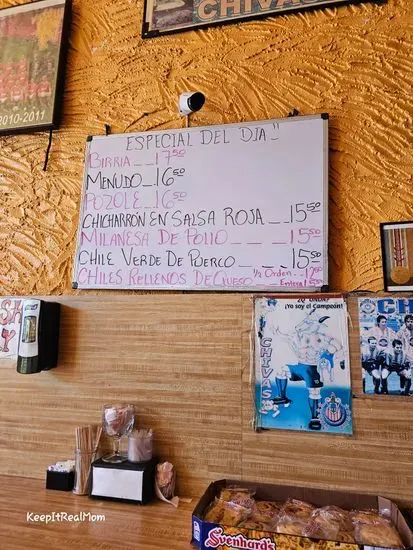 CHIVAS
2010-2011
ESPECIAL DEL DIA"
BIRRIA__17⁵⁰
MENUDO_16⁵⁰
POZOLE_16⁵⁰
CHICHARRON EN SALSA ROJA__15⁵⁰
MILANESA DE POLLO___15⁵⁰
CHILE VERDE DE PUERCO__15⁵⁰
CHILES RELLENOS DE QUESO ½ Orden--12⁵⁰
Entera
¡Yo soy el Campeón!
CHIVAS
KeepItRealMom
Svenhard's